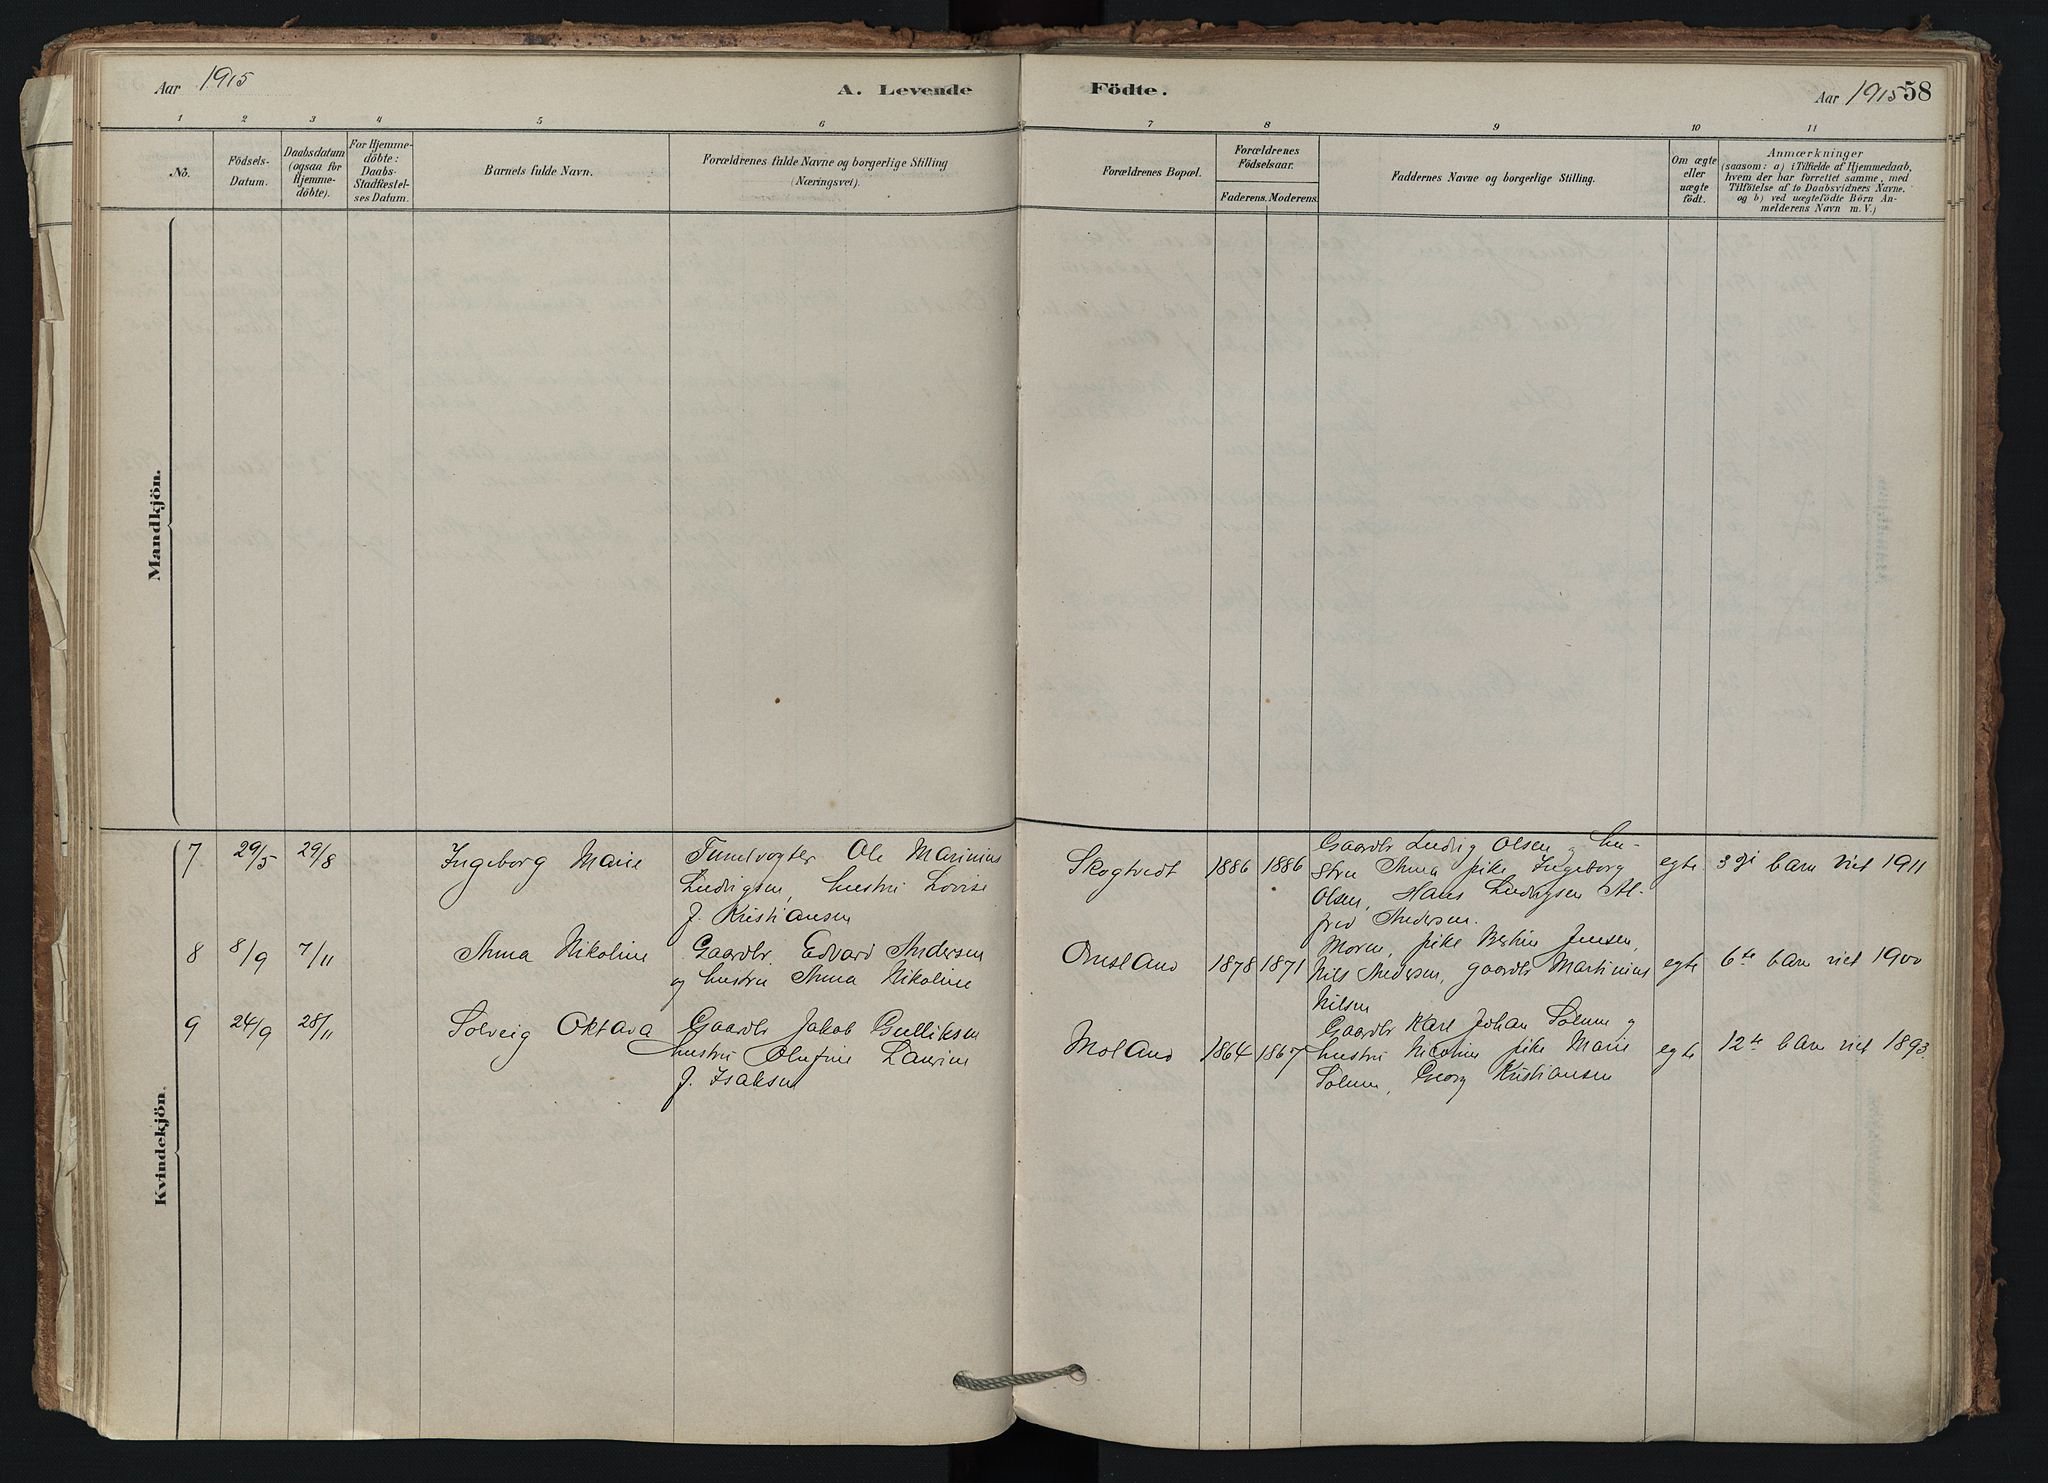 Aar 1915
A. Levende Födte.
Aar 1915 58
1 2 3 4 5 6 7 8 9 10 11
No.
Födsels-
Datum.
Daabsdatum
(ogsaa for
Hjemme-
döbte).
For Hjemme-
döbte:
Daabs-
Stadfæstel-
ses Datum.
Barnets fulde Navn.
Forældrenes fulde Navne og borgerlige Stilling
(Næringsvei).
Forældrenes Bopæl.
Forældrenes
Födselsaar.
Faderens. Moderens.
Faddernes Navne og borgerlige Stilling.
Om ægte
eller
uægte
födt.
Anmærkninger
(saasom: a) i Tilfælde af Hjemmedaab,
hvem der har forrettet samme, med
Tilföielse af to Daabsvidners Navne.
og b) ved uægtefödte Börn An-
melderens Navn m. V.)
Mandkjön.
Kvindekjön.
7 29/5 29/8 Ingeborg Marie
Tunelvogter Ole Marinius
Ludvigsen, hustru Lovise
f. Kristiansen
Skogtvedt 1886 1886
Gaardbr Ludvig Olsen og hu-
stru Anna pike Ingeborg
Olsen, Hans Ludvigsen Al-
fred Andersen.
egte 3dj barn viet 1911
8 8/9 7/11 Anna Nikoline
Gaardbr. Edvard Andersen
og hustru Anna Nikoline
Omsland 1878 1871
Moren, pike Bertine Jensen,
Nils Andersen, gaardbr Martinius
Nilsen
egte 6te barn viet 1900
9 24/9 28/11 Solveig Oktava
Gaardbr Jakob Gulliksen
hustru Olufine Laurine
f. Isaksen
Moland 1864 1867
Gaardbr Karl Johan Solum og
hustru Nicoline pike Marie
Solum, Georg Kristiansen
egte 12te barn viet 1893.